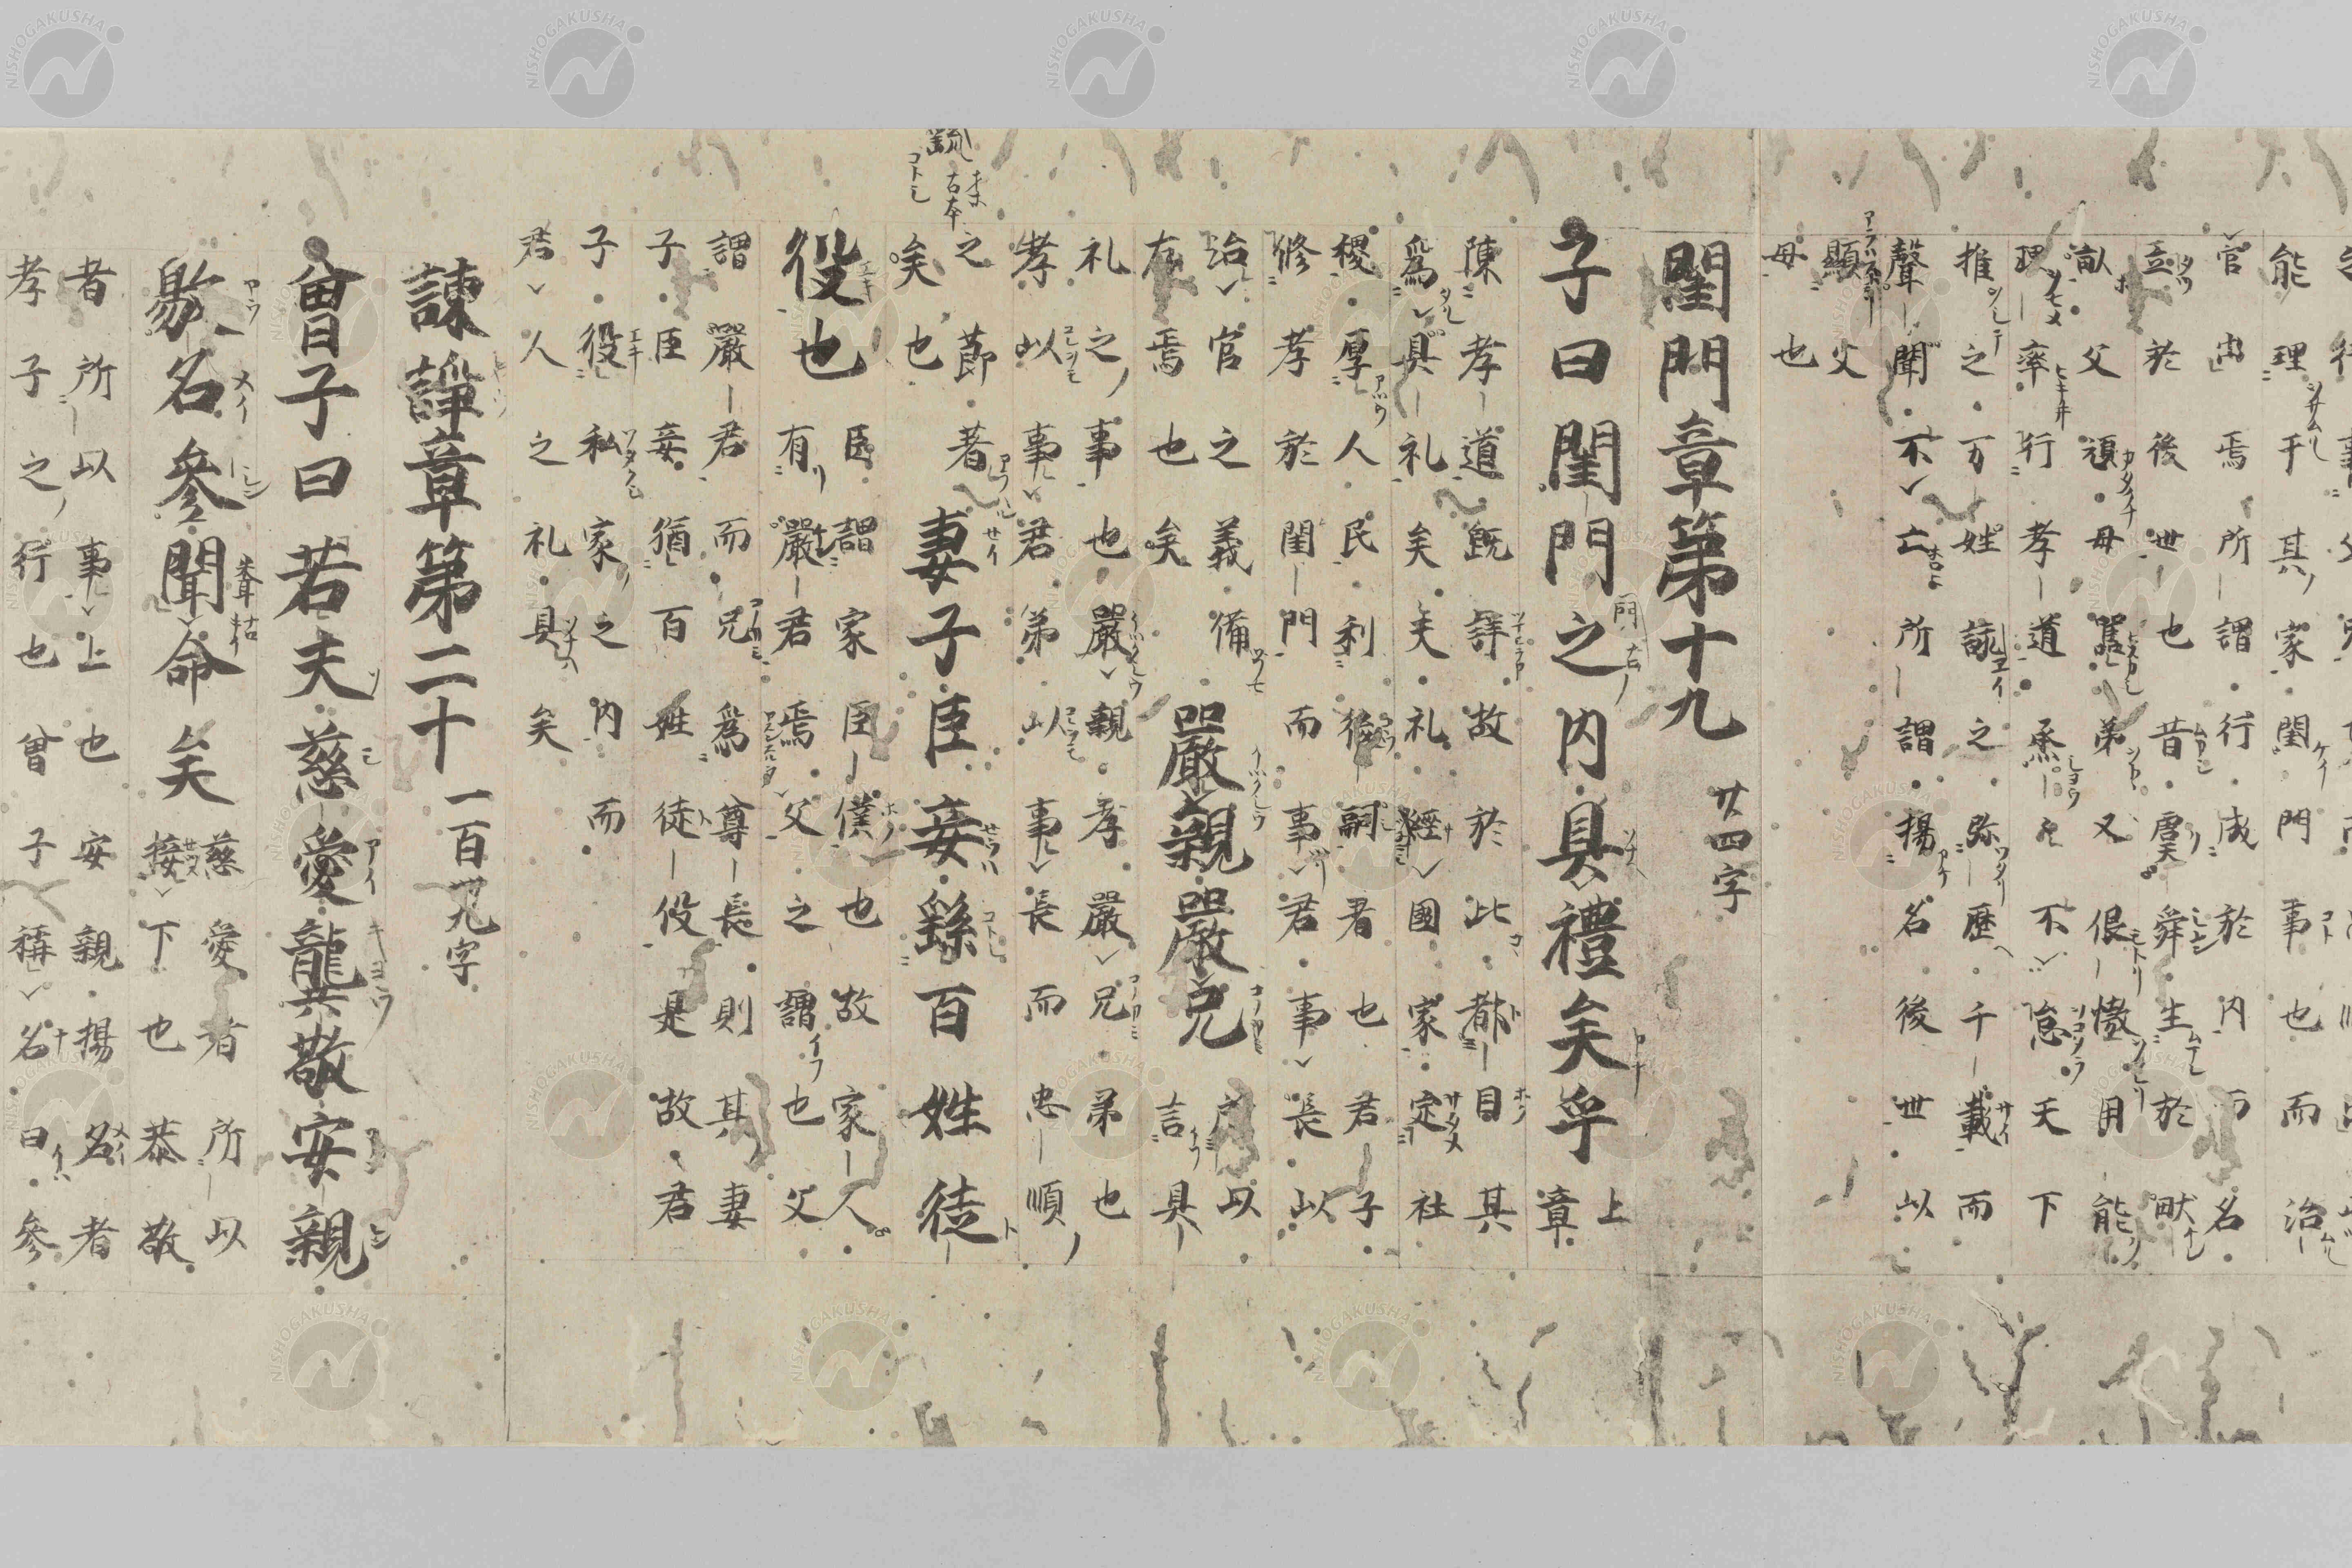 能理于其家閨門事也而治
官出焉所謂行成於内而名
立於後世也昔虞舜生於畎
畝父頑母嚚弟又佷慠用能
理率行孝道烝烝不怠天下
推之万姓詠之弥歷千載而
聲聞不亡所謂揚名後世以
顯父
母也
閨門章第十九 廿四字
子曰閨門之内具禮矣乎 上章
陳孝道既詳故於此都目其
爲具礼矣夫礼經國家定社
稷厚人民利後嗣者也君子
修孝於閨門而事君事長以
治官之義備
有焉也矣
嚴親嚴兄
所以
言具
礼之事也嚴親孝嚴兄弟也
孝以事君弟以事長而忠順
之莭著
矣也
妻子臣妾繇百姓徒
役也
臣謂家臣僕也故家人
有嚴君焉父之謂也父
謂嚴君而兄爲尊長則其妻
子臣妾猶百姓徒役是故君
子役私家之内而
君人之礼具矣
諫諍章第二十 一百卌九字
曾子曰若夫慈愛龍共敬安親
敭名參聞命矣
慈愛者所以
接下也恭敬
者所以事上也安親揚名者
孝子之行也曾子稱名曰參